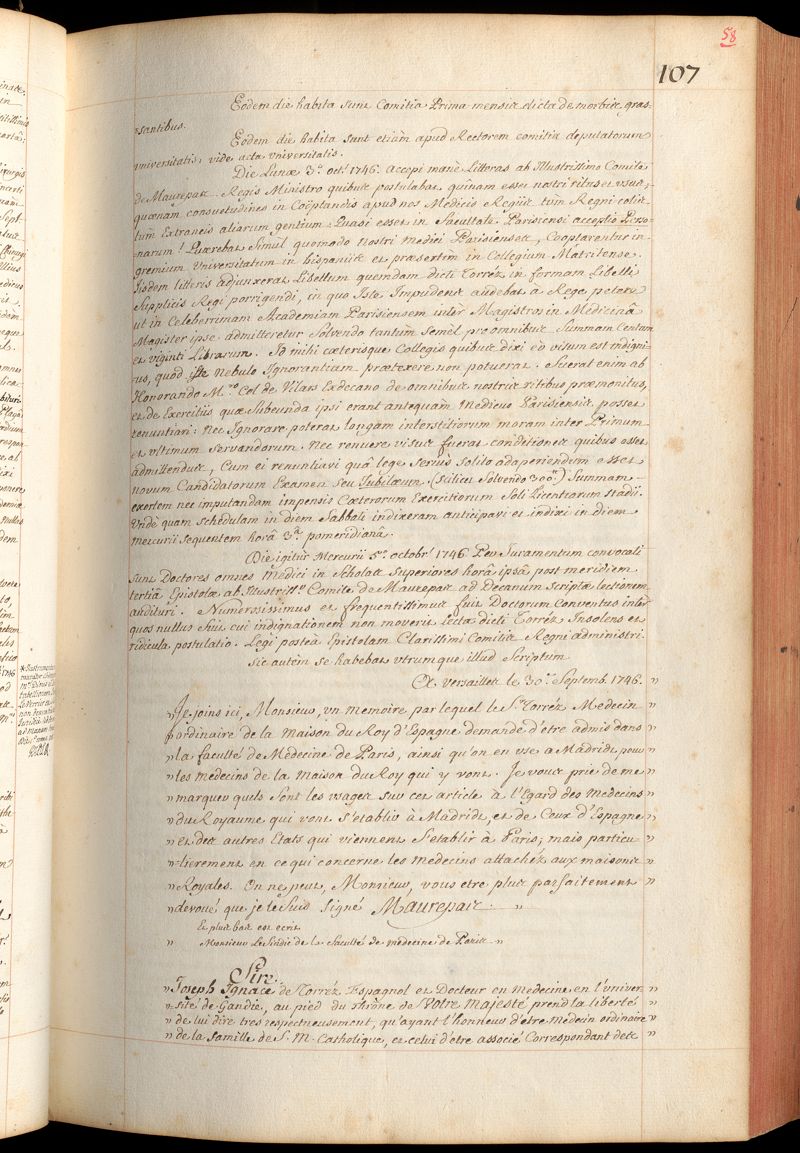 58
107
Eodem die habita sunt Comitia Prima mensis dicta de morbis gras-
=santibus.
Eodem die habita sunt etiam apud Rectorem comitia deputatorum
universitatis, vide acta universitatis.
Die Lunæ 3.ª octb.ˢ 1746. Accepi mane Litteras ab Illustrissimo Comite
de Maurepas Regis Ministro quibus postulabat quinam essent nostri ritus et usus,
quænam consuetudines in Coöptandis apud nos Medicis Regiis tum Regni colis
tum Extraneis aliarum gentium quasi esset in Facultate Parisiensi acceptio Perso-
=narum! Quærebat Simul quomodo nostri Medici Parisienses, Cooptarentur in
gremium Universitatum in hispaniis et præsertim in Collegium Matritense.
Iisdem litteris adjunxerat Libellum quemdam dicti Torréz in formam Libelli
Supplicis Regi porrigendi, in quo Iste Impudens audebat a Rege petere
ut in Celeberrimam Academiam Parisiensem inter Magistros in Medicinâ
Magister ipse admitteretur Solvendo tantum semel pro omnibus Summam Centum
et viginti Librarum. Id mihi cæterisque Collegis quibus dixi eo visum est indigni-
us, quod Iste nebulo Ignorantiam prætexere non poterat. Fuerat enim ab
Honorando M.ʳᵒ Col de Vilars Exdecano de omnibus nostris ritibus præmonitus,
et de Exercitiis quæ Subeunda ipsi erant antequam Medicus Parisiensis posset
renuntiari: Nec Ignorare poterat longam interstitiorum moram inter Primum
et ultimum Servandorum. Nec renuere visus fuerat conditiones quibus esset
admittendus, Cum ei renuntiavi quâ lege Serius Solito adaperiendum esset
novum Candidatorum Examen seu Jubilæum (Scilicet Solvendo 300.) Summam
exortem nec imputandam impensis Cæterorum Exercitiorum Soli Licentiarum stadii.
Unde quam schedulam in diem Sabbati indixeram anticipavi et indixi in diem
mercurii sequentem horâ 3.ª pomeridianâ.
Die igitur Mercurii 5.ª octobr.ˢ 1746. Per Juramentum convocati
sunt Doctores omnes Medici in Scholas Superiores horâ ipsâ post meridiem
tertiâ Epistolæ ab Illustriss.º Comite de Maurepas ad Decanum Scriptæ lectionem
audituri. Numerosissimus et frequentissimus fuit Doctorum Conventus inter
quos nullus fuit cui indignationem non moverit lecta dicti Torréz Insolens et
ridicula postulatio. Legi posteà Epistolam Clarissimi Comitis Regni administri.
Sic autem se habebat utrumque illud Scriptum
A. versailles le 30.ᵉ Septemb. 1746. "
" Je joins ici, Monsieur, un memoire par lequel le S.ʳ Torréz Medecin "
" ordinaire de la maison du Roy d'Espagne demande d'être admis dans "
" la faculté de Médecine de Paris, ainsi qu'on en use a Madrid, pour "
" les medecins de la maison du Roy qui y vont. Je vous prie de me "
" marquer quels sont les usages sur cet article à l'Egard des Medecins "
" du Royaume qui vont s'etablir à Madrid, et de Ceux d'Espagne "
" et des autres Etats qui viennent s'etablir à Paris, mais particu- "
" =lierement en ce qui concerne les medecins attachés aux maisons "
" Royales. On ne peut, Monsieur, vous etre plus parfaitement "
" devoué que je le suis signé Maurepas. "
Et plus bas est ecrit
" Monsieur Le Sindic de la faculté de medecine de Paris "
Sire.
" Joseph Ignace de Torréz Espagnol et Docteur en medecine en l'univer- "
" =sité de Gandie, au pied du thrône de Votre Majesté prend la liberté "
" de lui dire tres respectueusement, qu'ayant l'honneur d'etre medecin ordinaire "
" de la famille de S. M. Catholique, et celui d'etre associé Correspondant des "